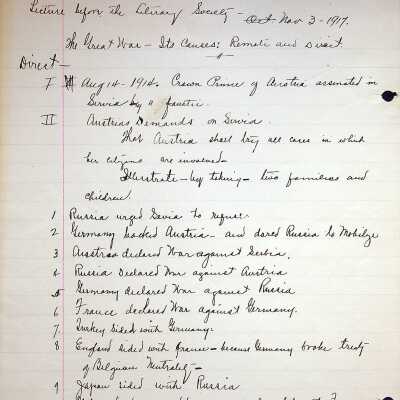 Lecture before the Literary Society - Oct Nov 3 - 1917.
The Great War - Its Causes: Remote and Direct.
Direct -
I Aug 14 - 1914. Crown Prince of Austria assinated in
Servia by a fanatic.
II Austrias Demands on Servia.
That Austria shall try all cases in which
her citizens are involved -
Illustrate - by taking - two families and
children.
1 Russia urged Sevia to refuse.
2 Germany backed Austria - and dared Russia to Mobilize
3 Austria declared War against Serbia.
4 Russia Declared War against Austria
5 Germany declared War against Russia
6 France declared War against Germany.
7. Turkey sided with Germany.
8 England sided with France - because Germany broke treaty
of Belgian Neutrality -
9 Japan sided with Russia